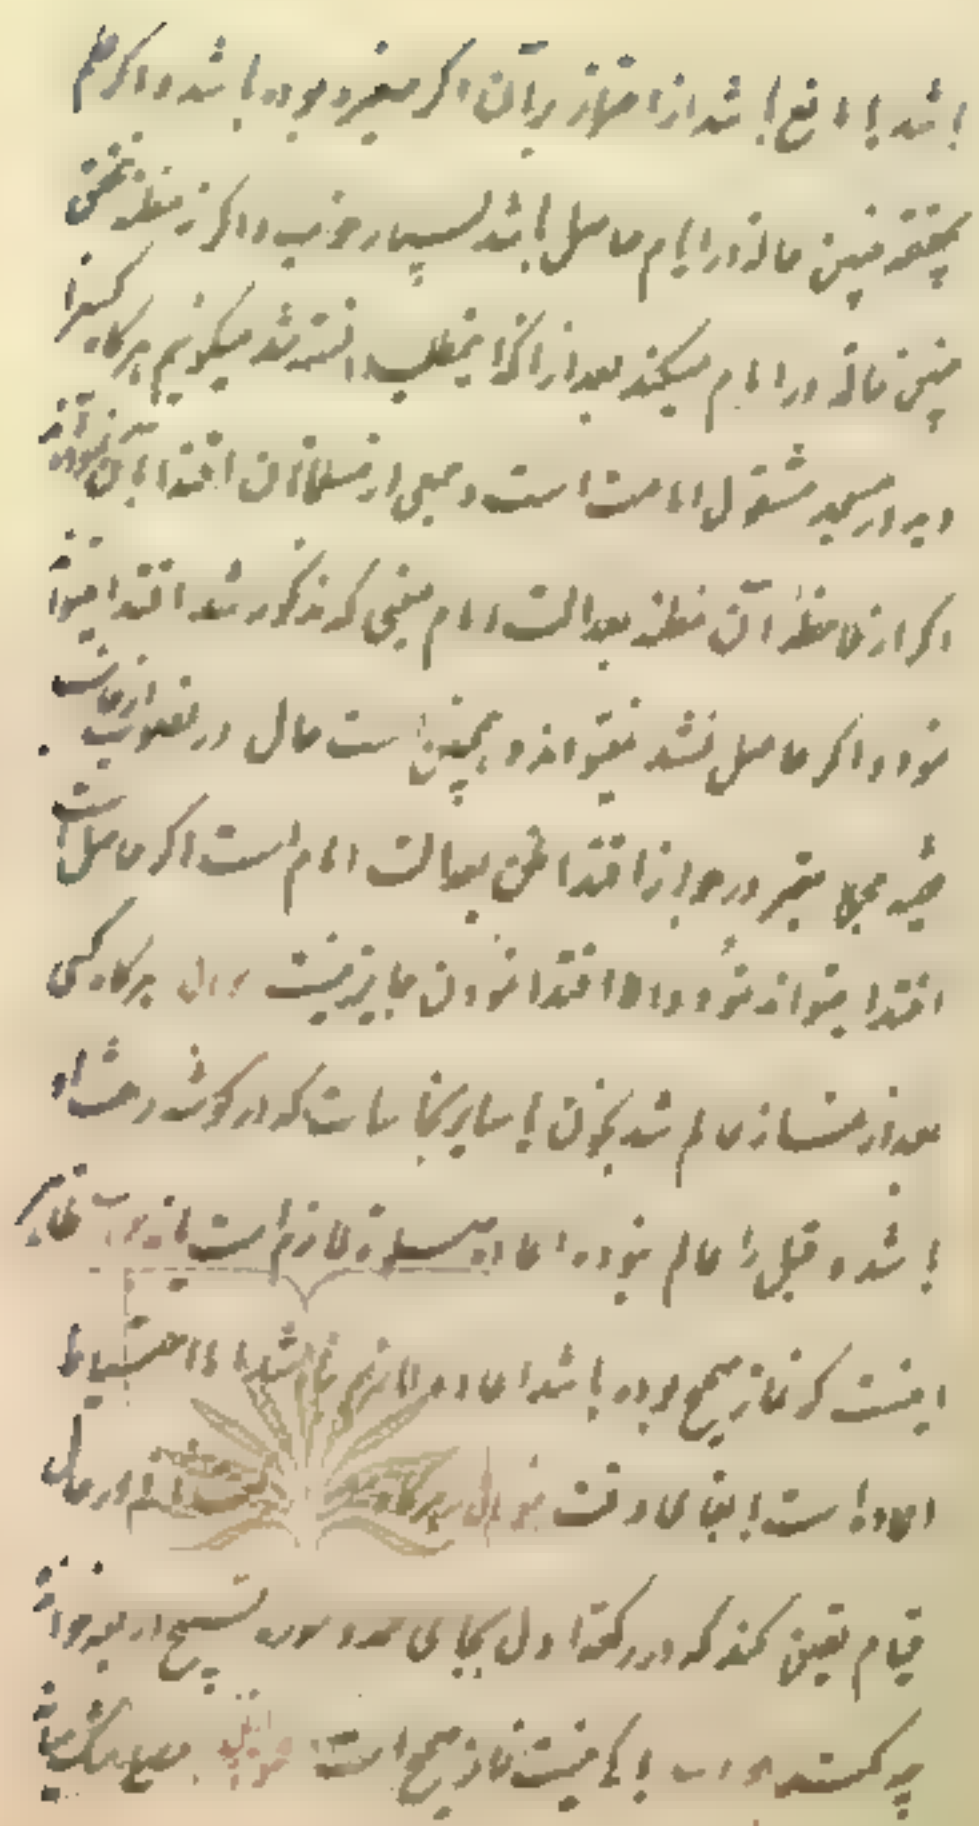 باشد یا مانع باشد از احتراز بر آن اگر صغیره بوده باشد و اگر علم
بتحقق چنین حالة در امام حاصل باشد بسیار خوب و اگر نه مظنه تحقق
چنین حالة در امام میکند بعد از آنکه اینمطلب دانسته شد میگوئیم هرگاه کسیرا
دید در مسجد مشغول امامت است و جمعی از مسلمانان اقتدا بآن نموده‌اند
اگر از ملاحظۀ آن مظنه بعدالت امام بمعنی که مذکور شد اقتدا میتواند
نمود و اگر حاصل نشد نمیتواند و همچنین است حال در
معتبر در جواز اقتدا ظن بعدالت امام است اگر حاصل است
اقتدا میتواند نمود والا اقتدا نمودن جایز نیست سوال هرگاه کسی
بعد از نماز عالم شد بخون یا سایر نجاسات که در گوشه رختش او
باشد و قبل را عالم نبوده اعاده نماز لازم است یا نه جواب ظاهر
اینست که نماز صحیح بوده باشد اعاده لازم نباشد اما احتیاط
اعاده است با بقای وقت سوال هرگاه در حال
قیام یقین کند که در رکعة اول بجای حمد و سوره تسبیح اربعه خوانده
چه کند جواب باکی نیست نماز صحیح است سوال